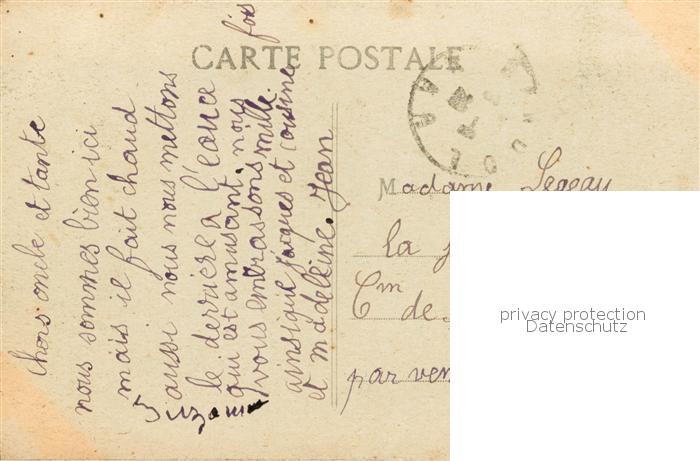 CARTE POSTALE
Chers oncle et tante
nous sommes bien ici
mais il fait chaud
aussi nous nous mettons
le derriere a l'eau ce
qui est amusant. nous
vous embrassons mille fois
ainsi que jacques et cousine
et madeleine. Jean
Suzanne
Madame Legeay
la
Cm de
par
privacy protection
Datenschutz